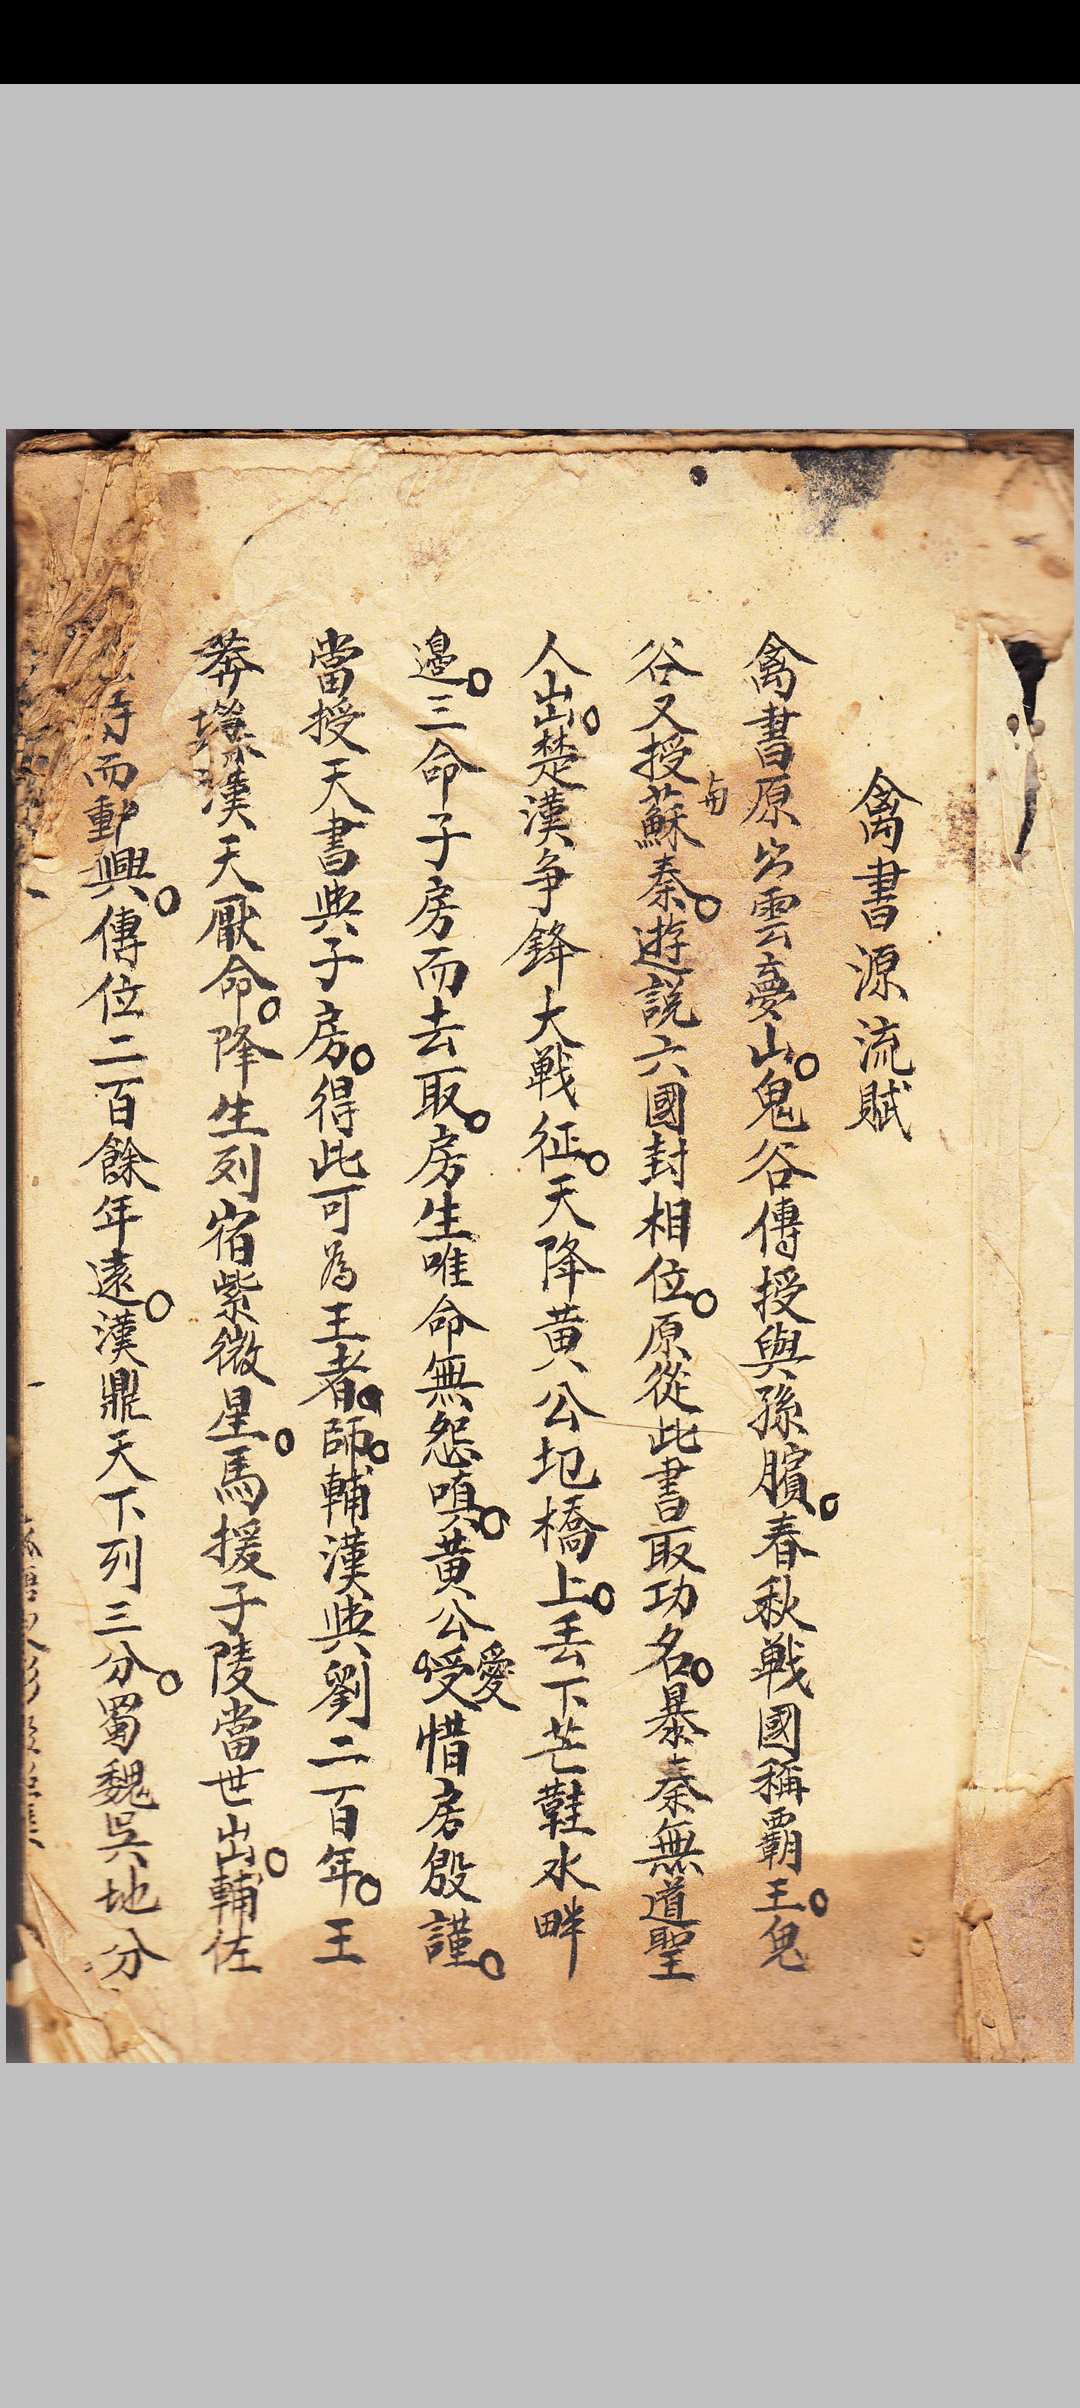 禽書源流賦
禽書原出雲夢山○鬼谷傳授與孫臏○春秋戰國稱霸王○鬼
谷又授與蘇秦○遊說六國封相位○原從此書取功名○暴秦無道聖
人出○楚漢争鋒大戰征○天降黄公圯橋上○丢下芒鞋水畔
邊○三命子房而去取○房生唯命無怨嗔○黄公愛惜房殷謹○
當授天書與子房○得此可為王者師○輔漢興劉二百年○王
莽漢天厭命○降生列宿紫微星○馬援子陵當世出○輔佐
而動興○傳位二百餘年遠○漢鼎天下列三分○蜀魏吳地分